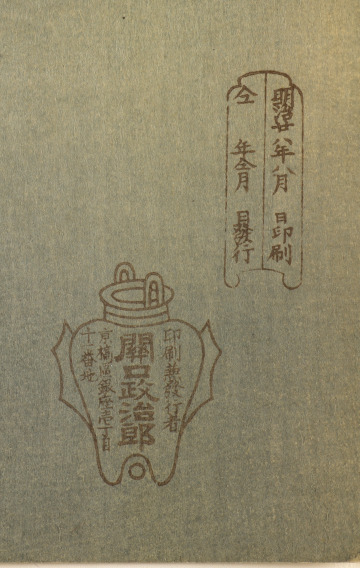 明治廿八年八月 日印刷
仝 年仝月 日發行
印刷兼發行者
關口政治郎
京橋區銀座壱丁目
十一番地